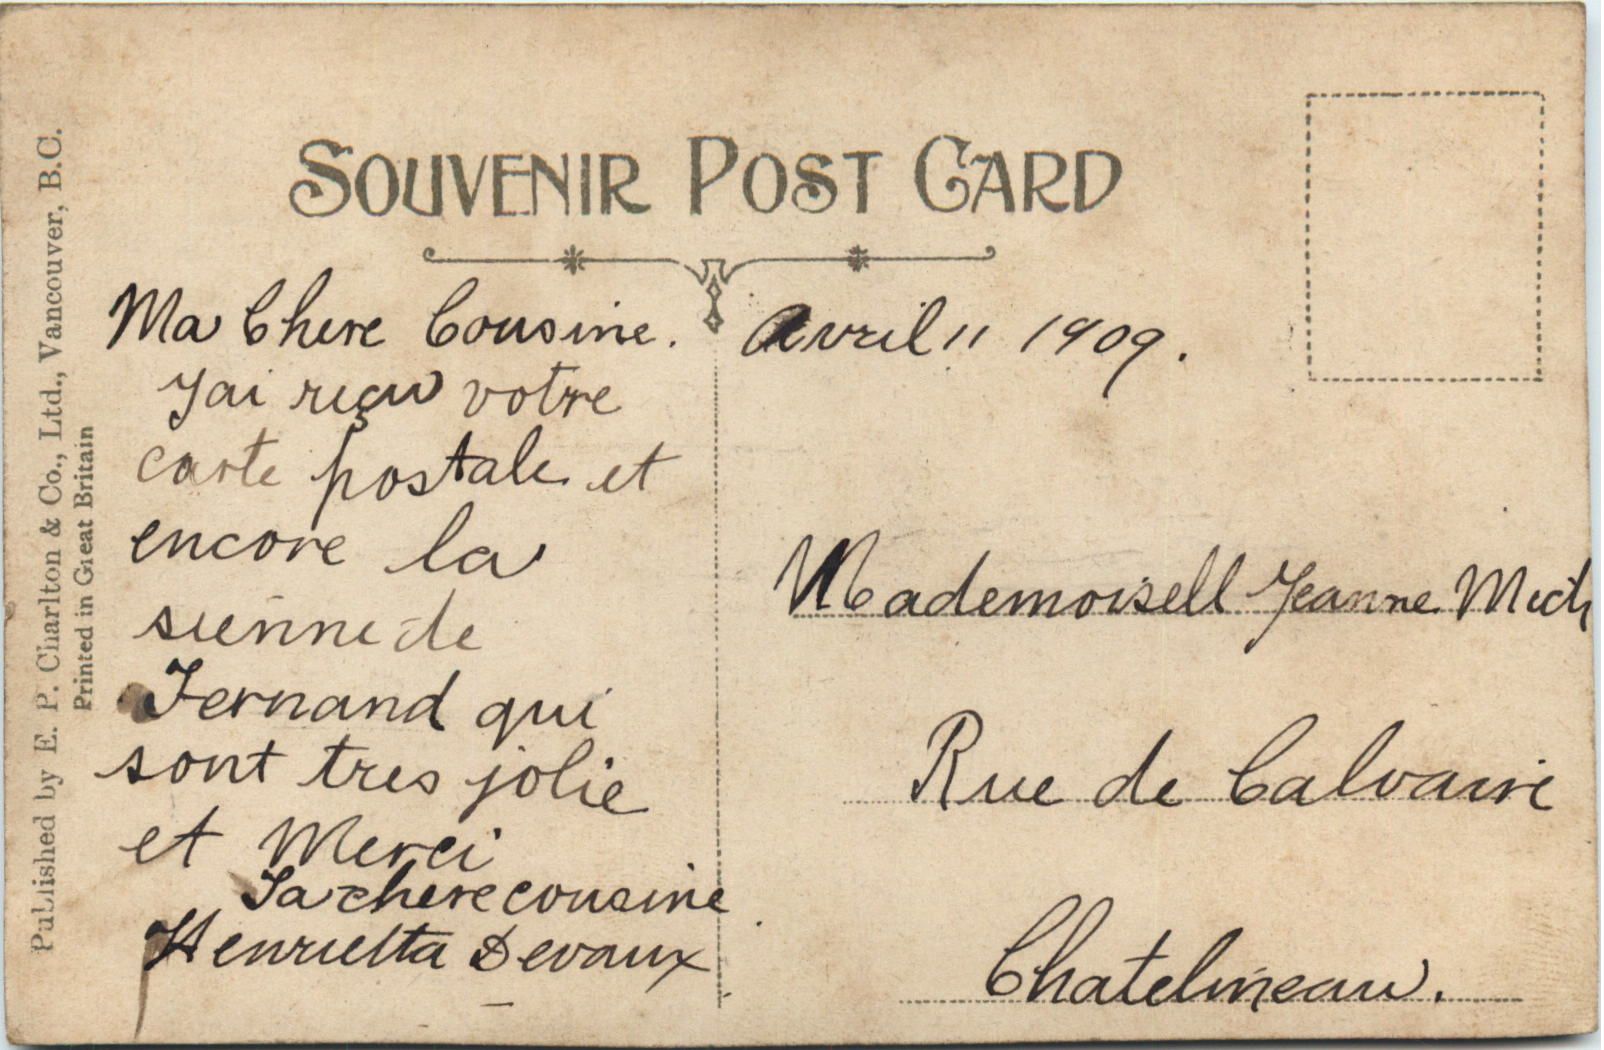 SOUVENIR POST CARD
Published by E. P. Charlton & Co., Ltd., Vancouver, B.C.
Printed in Great Britain
Ma Chere Cousine.
J'ai reçu votre
carte postale et
encore la
sienne de
Fernand qui
sont tres jolie
et Merci
Ta chere cousine
Henrietta Devaux
Avril 11 1909.
Mademoisell Jeanne Mich
Rue de Calvaire
Chatelineau.